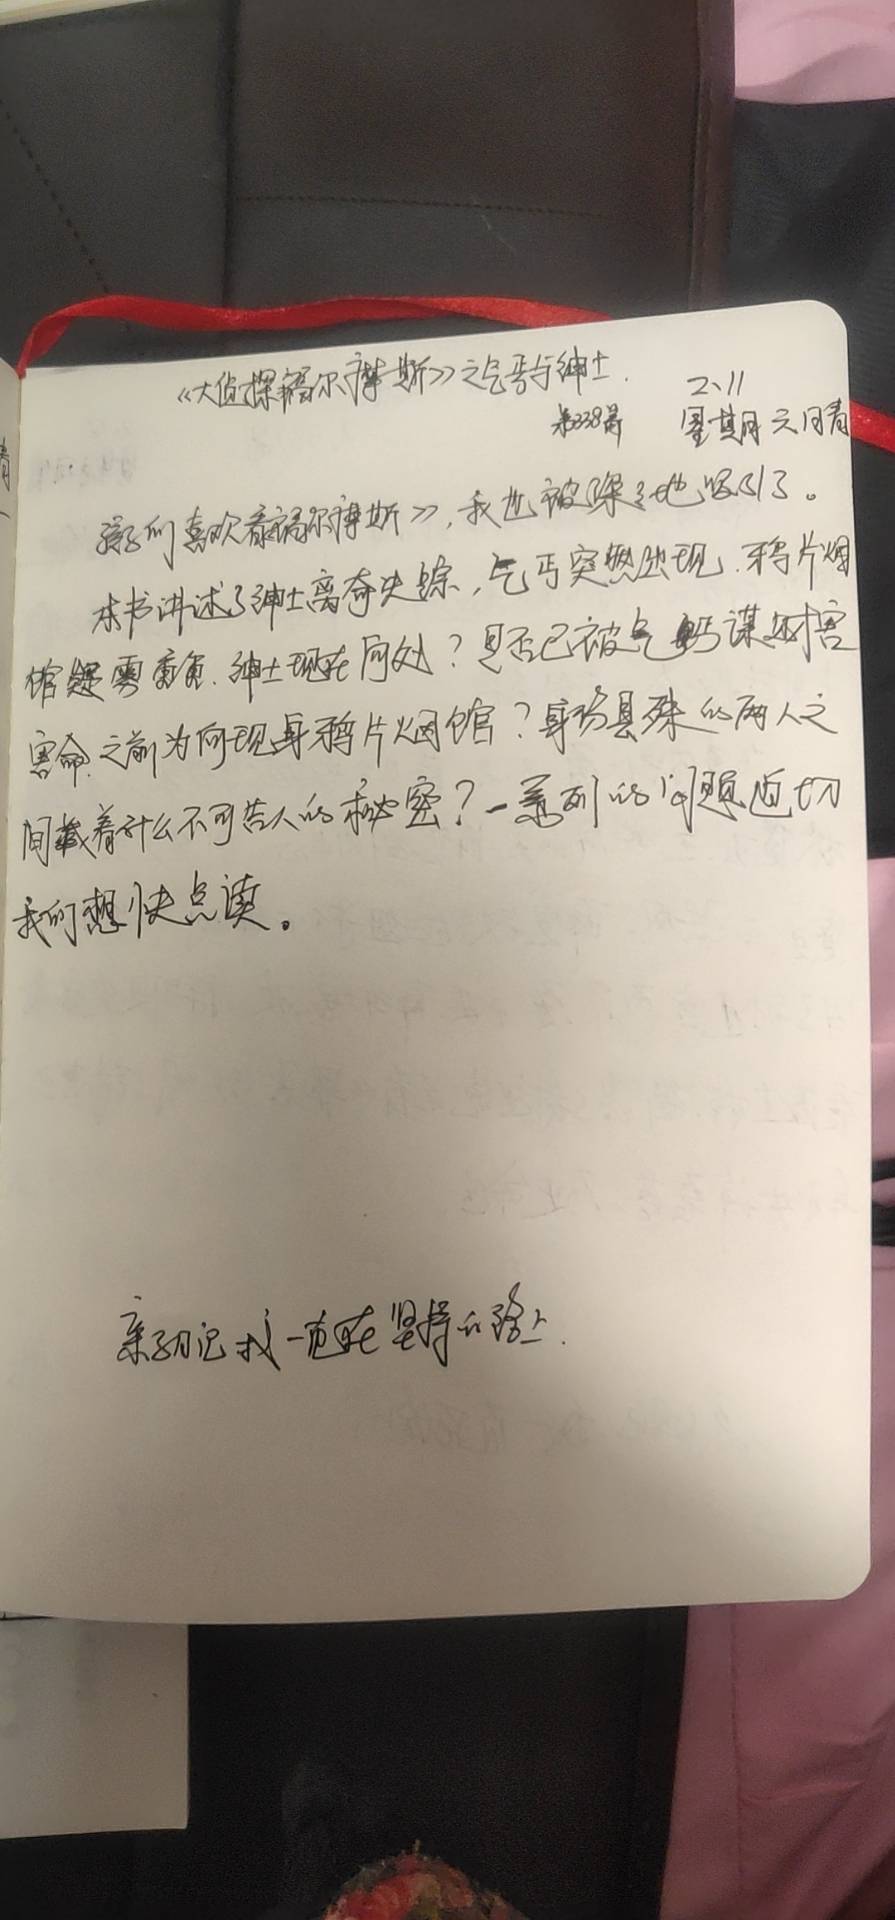 《大侦探福尔摩斯》之乞丐与绅士.
2.11
第238篇
星期六 晴
孩子们喜欢看福尔摩斯》，我也被深深地吸引了。
本书讲述了绅士离奇失踪，乞丐突然出现.鸦片烟
馆疑雾重重.绅士现在何处？是否已被乞丐谋财害
害命.之前为何现身鸦片烟馆？身份悬殊的两人之
间藏着什么不可告人的秘密？一系列的问题迫切
我们想快点读。
亲子日记 我一直在坚持的路上.
晴